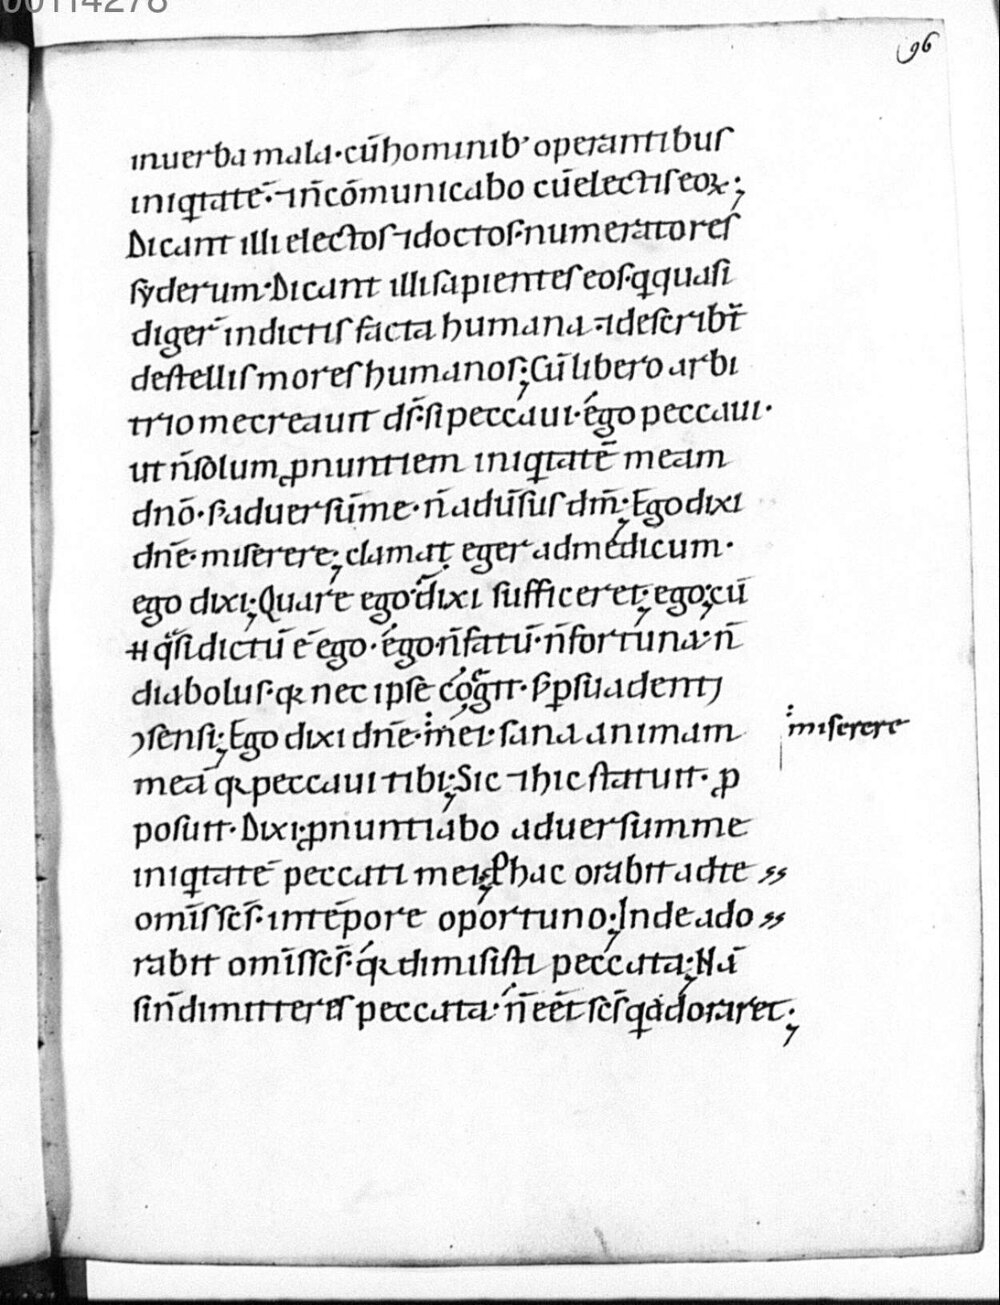 00114278
96
inuerba mala·cū hominib' operantibus
iniqtatē·⁊n̄ cōmunicabo cū electis eoꝝ;
Dicant illi electos ⁊doctos·numeratores
syderum·Dicant illi sapientes eos·q quasi
diger̄ indictis facta humana ⁊describt̄
destellis mores humanos; Cū libero arbi
trio mecreauit ds̄·si peccaui·ego peccaui·
ut n̄ solum ꝓnuntiem iniqtatē meam
dnō· aduersūme·n̄ adūsus dm̄; Ego dixi
dnē·miserere; clamat eger admedicum·
ego dixi; Quare ego dixi sufficeret; ego; cū
 dictū ē ego·ego·n̄ fatū·n̄ fortuna·n̄
diabolus· nec ipse cogīt· ꝑsuadenti
ꝯsensi; Ego dixi dnē·mei·sana animam
miserere
meā  peccaui tibi; Sic ⁊hic statuit· ꝓ
posuit·Dixi; ꝓnuntiabo aduersumme
iniqtatē peccati mei; Phac orabit adte
omīs scs̄·intēpore oportuno; Inde ado
rabit omīs scs̄· dimisisti peccata; Nā
sin̄ dimitteres peccata·n̄ eēt scs̄ q adoraret;